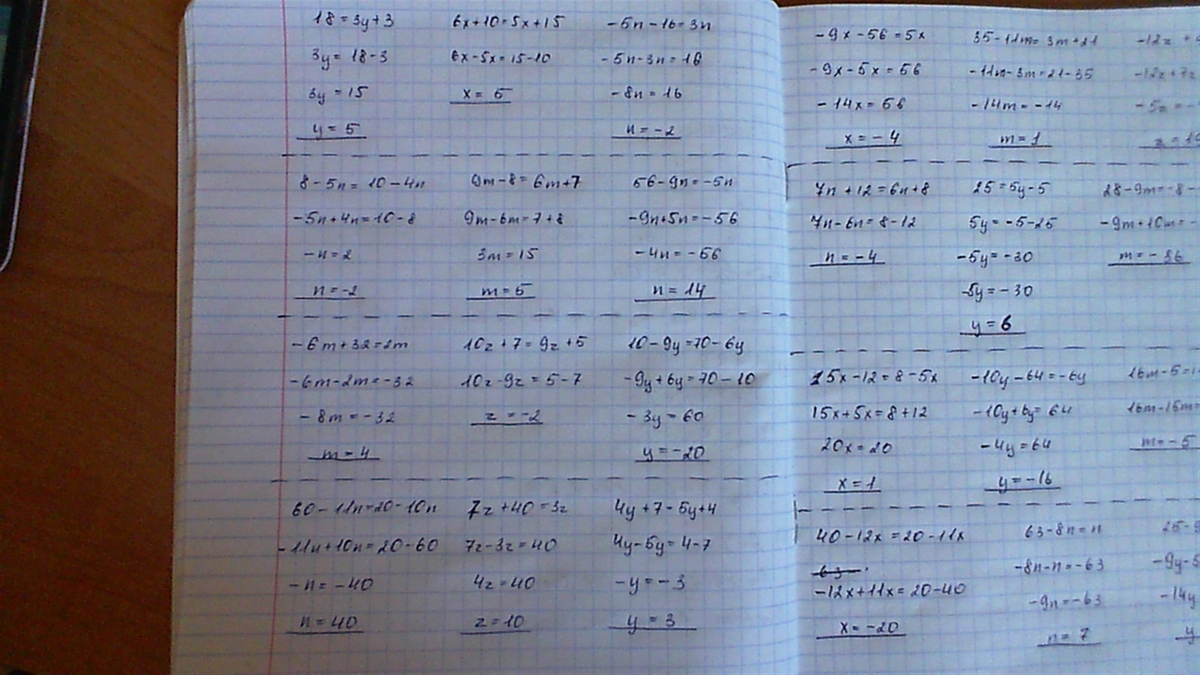 18 = 3y + 3
3y = 18 - 3
3y = 15
y = 5
6x + 10 = 5x + 15
6x - 5x = 15 - 10
x = 5
-5n - 16 = 3n
-5n - 3n = 16
-8n = 16
n = -2
8 - 5n = 10 - 4n
-5n + 4n = 10 - 8
-n = 2
n = -2
9m - 8 = 6m + 7
9m - 6m = 7 + 8
3m = 15
m = 5
56 - 9n = -5n
-9n + 5n = -56
-4n = -56
n = 14
-6m + 32 = 2m
-6m - 2m = -32
-8m = -32
m = 4
10z + 7 = 9z + 5
10z - 9z = 5 - 7
z = -2
10 - 9y = 70 - 6y
-9y + 6y = 70 - 10
-3y = 60
y = -20
60 - 11n = 20 - 10n
-11n + 10n = 20 - 60
-n = -40
n = 40
7z + 40 = 3z
7z - 3z = 40
4z = 40
z = 10
4y + 7 - 5y + 4
4y - 5y = 4 - 7
-y = -3
y = 3
-9x - 56 = 5x
-9x - 5x = 56
-14x = 56
x = -4
35 - 11m = 3m + 21
-11m - 3m = 21 - 35
-14m = -14
m = 1
-12z +
-12z + 7z
-5z = -
7n + 12 = 6n + 8
7n - 6n = 8 - 12
n = -4
25 = 5y - 5
5y = -5 - 25
-5y = -30
-5y = -30
y = 6
28 - 9m = -8 -
-9m + 10m = -
m = -36
15x - 12 = 8 - 5x
15x + 5x = 8 + 12
20x = 20
x = 1
-10y - 64 = -6y
-10y + 6y = 64
-4y = 64
y = -16
16m - 5 =
16m - 15m =
m = -5
40 - 12x = 20 - 11x
63
-12x + 11x = 20 - 40
x = -20
63 - 8n = n
-8n - n = -63
-9n = -63
n = 7
25 - 9
-9y - 5
-14y
y